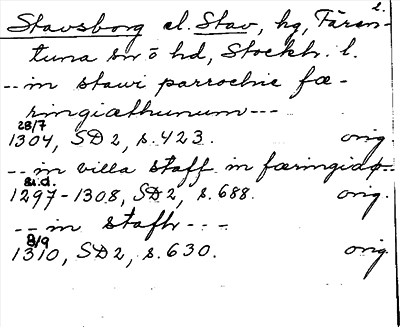 Stavsborg el. Stav, hg, Fären-
tuna sn o hd, Stockh. l.
-- in stawi parrochie fæ-
ringiæthunum ---
28/7
1304, SD 2, s. 423. orig.
-- in villa staff in færingiøø--
s.d.
1297-1308, SD 2, s. 688. orig.
-- in stafh - - -
8/9
1310, SD 2, s. 630. orig.